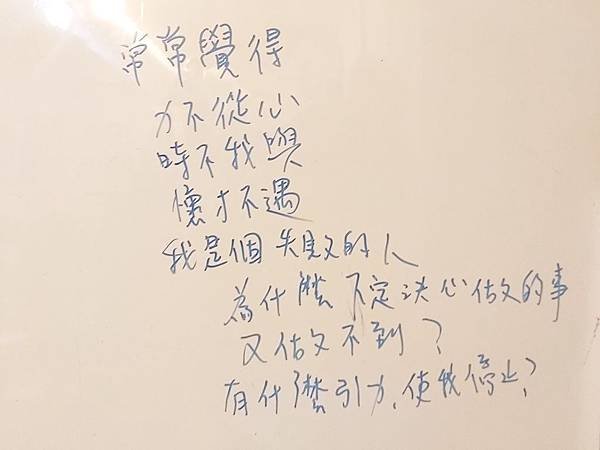 常常覺得
力不從心
時不我與
懷才不遇
我是個失敗的人
為什麼下定決心做的事
又做不到?
有什麼引力,使我停止?